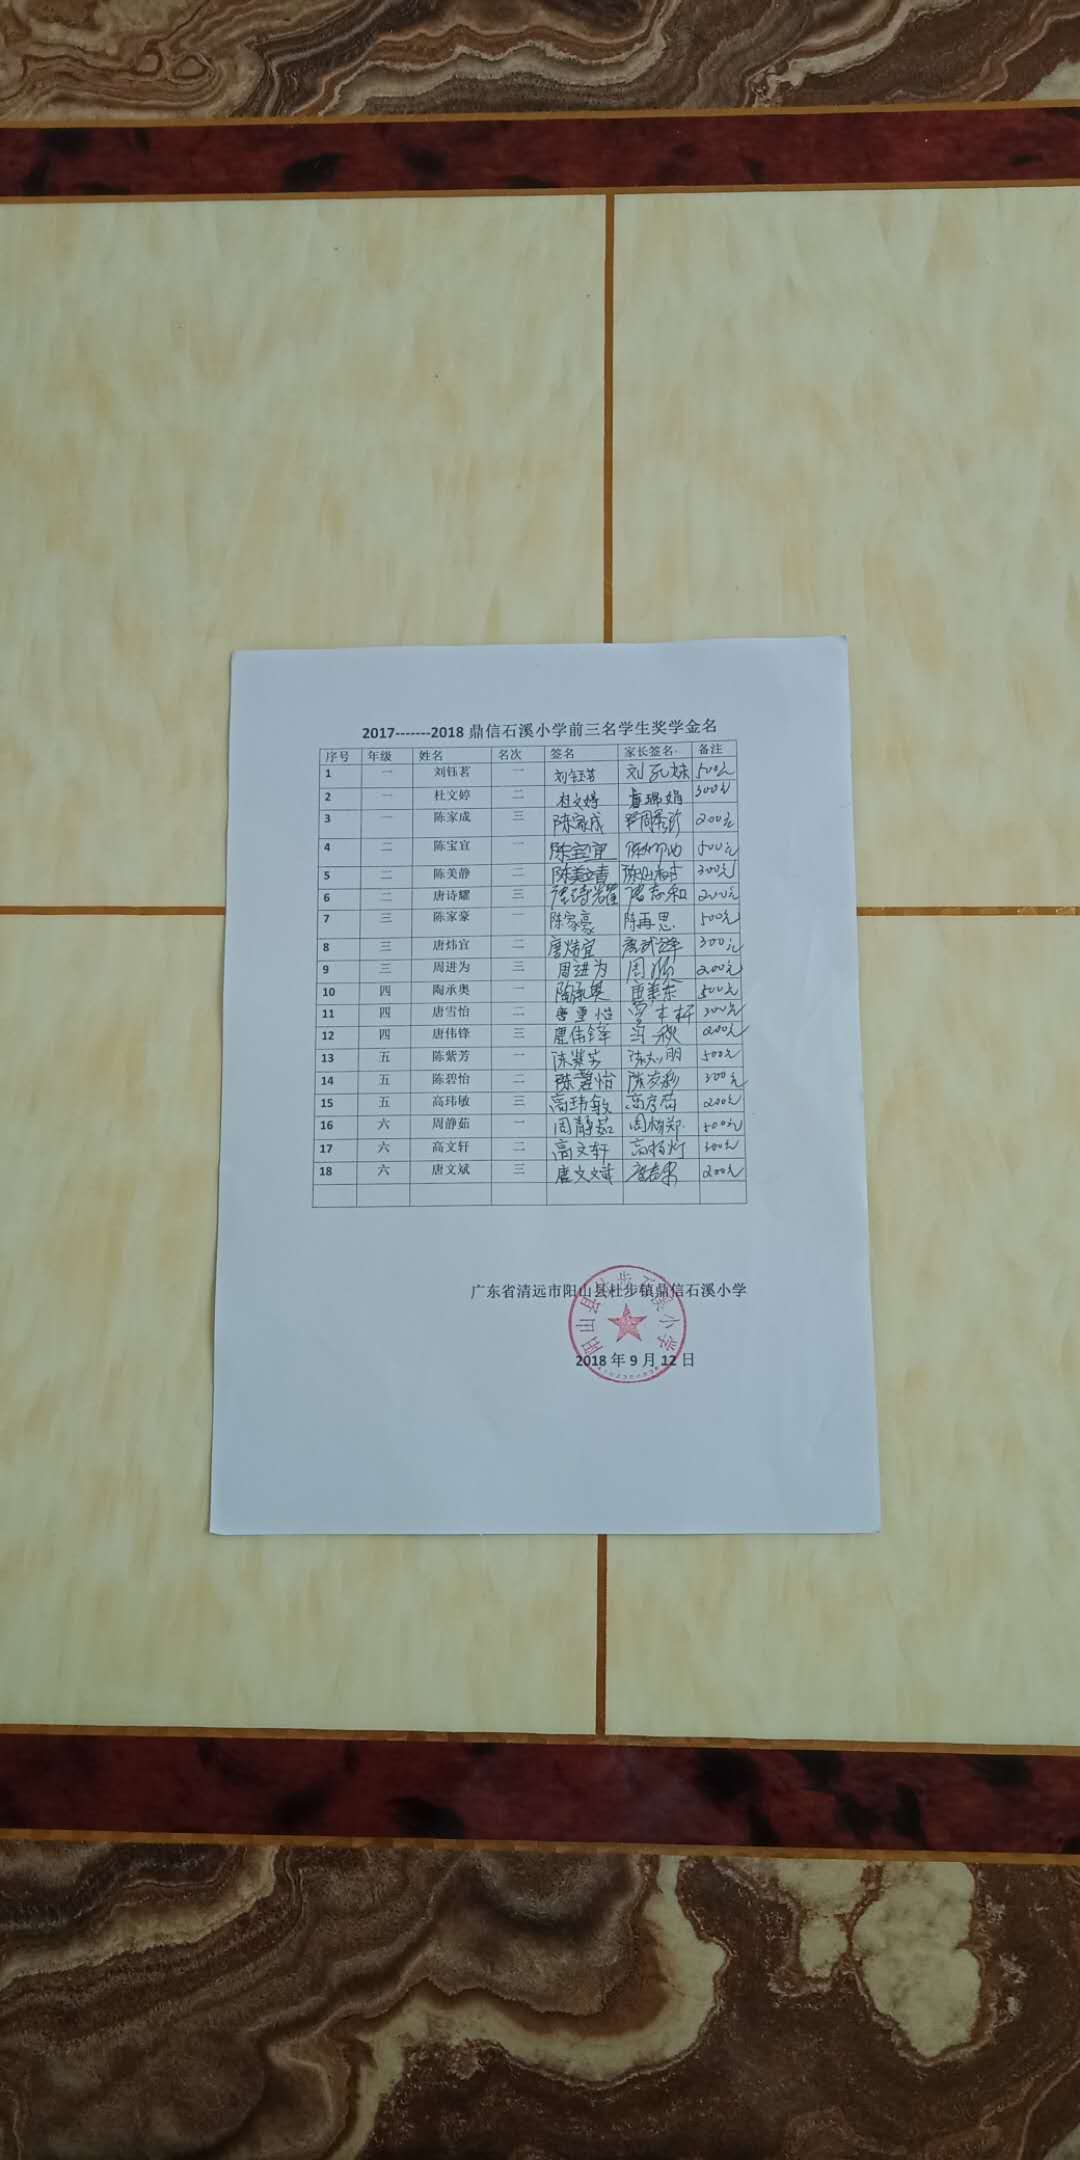 2017-------2018 鼎信石溪小学前三名学生奖学金名
序号 年级 姓名 名次 签名 家长签名. 备注
1 一 刘钰茗 一 刘钰茗 刘 妹 500元
2 一 杜文婷 二 杜文婷 娟 300元
3 一 陈家成 三 陈家成 200元
4 二 陈宝宜 一 陈宝宜 500元
5 二 陈美静 二 陈美静 300元
6 二 唐诗耀 三 唐诗耀 唐 和 200元
7 三 陈家豪 一 陈家豪 陈再思 500元
8 三 唐炜宜 二 唐炜宜 300元
9 三 周进为 三 周进为 周 200元
10 四 陶承奥 一 陶承奥 500元
11 四 唐雪怡 二 唐雪怡 300元
12 四 唐伟锋 三 唐伟锋 冯 秋 200元
13 五 陈紫芳 一 陈紫芳 陈 明 500元
14 五 陈碧怡 二 陈碧怡 陈 彩 300元
15 五 高玮敏 三 高玮敏 高 200元
16 六 周静茹 一 周静茹 周 郑 500元
17 六 高文轩 二 高文轩 高 灯 300元
18 六 唐文斌 三 唐文斌 200元
广东省清远市阳山县杜步镇鼎信石溪小学
阳山县杜步石溪小学
2018 年 9 月 12 日